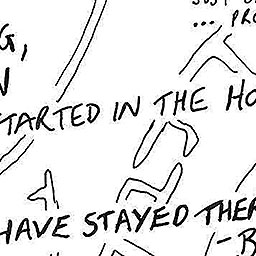 ... PRO
G,
N
STARTED IN THE HO
HAVE STAYED THER
-B